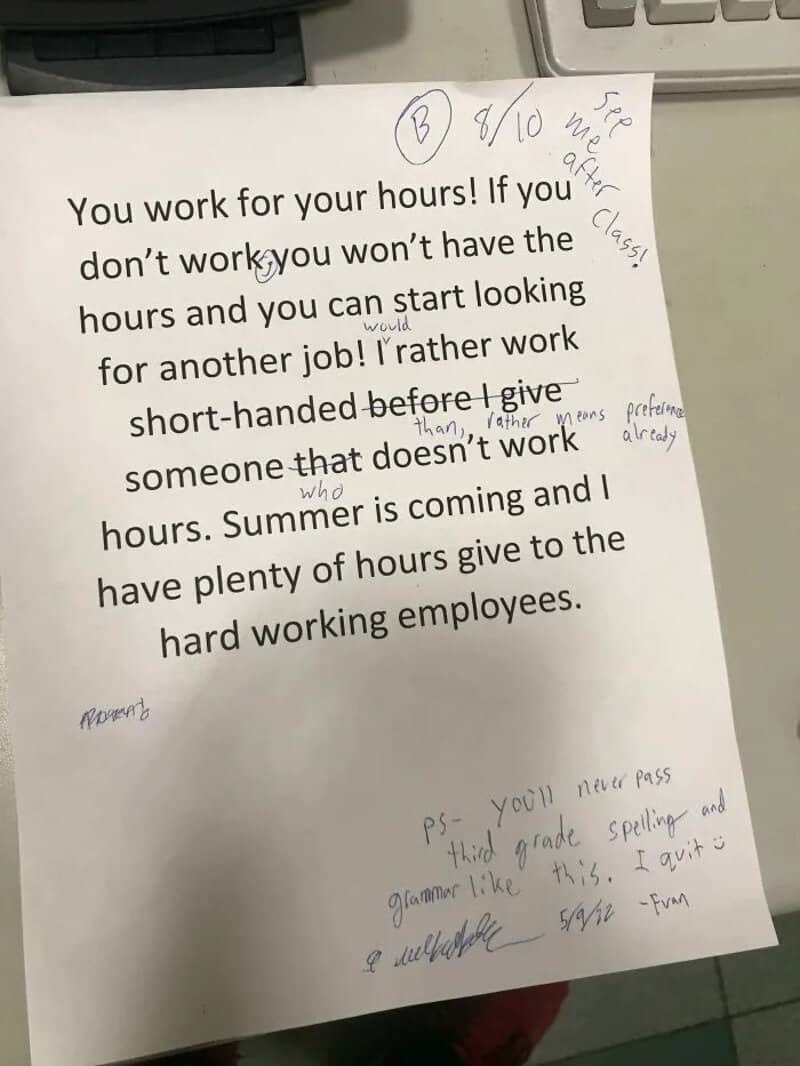 B 8/10
See
me
after
Class!
You work for your hours! If you
don't work, you won't have the
hours and you can start looking
would
for another job! I rather work
short-handed before I give
than, rather means preference
already
someone that doesn't work
who
hours. Summer is coming and I
have plenty of hours give to the
hard working employees.
PS- you'll never pass
third grade spelling and
grammar like this. I quit
5/9/22 -Evan